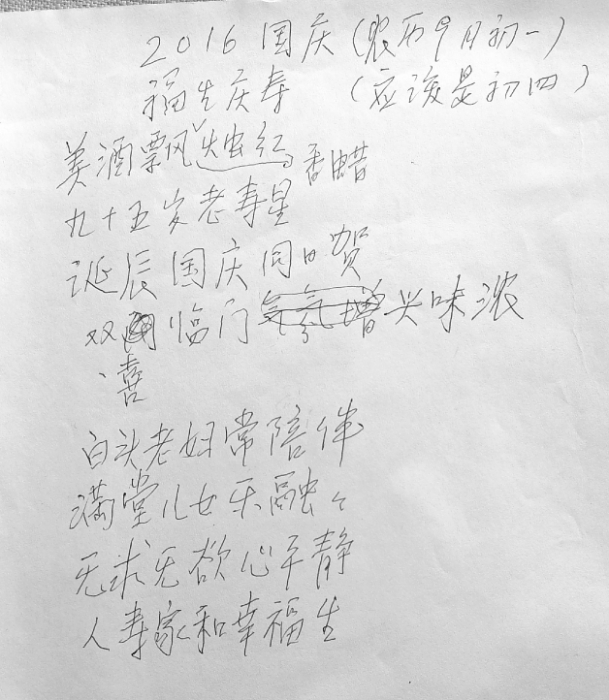 2016国庆(农历9月初一)
福生庆寿 (应该是初四)
美酒飘烛红香蜡
九十五岁老寿星
诞辰国庆同日贺
双临门气氛增兴味浓
喜
白头老妇常陪伴
满堂儿女乐融々
无求无欲心平静
人寿家和幸福生